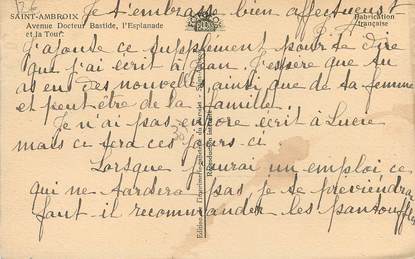 Je t'embrasse bien affectueust
SAINT-AMBROIX
Avenue Docteur Bastide, l'Esplanade
et la Tour.
Fabrication
française
J'ajoute ce supplément pour te dire
que j'ai écrit à Jean. J'espère que tu
as eu des nouvelles, ainsi que de ta femme
et peut être de la famille.
Je n'ai pas encore écrit à Lucie
mais ce sera ces jours ci.
Lorsque j'aurai un emploi ce
qui ne tardera pas, je te préviendrai
faut il recommander les pantoufles